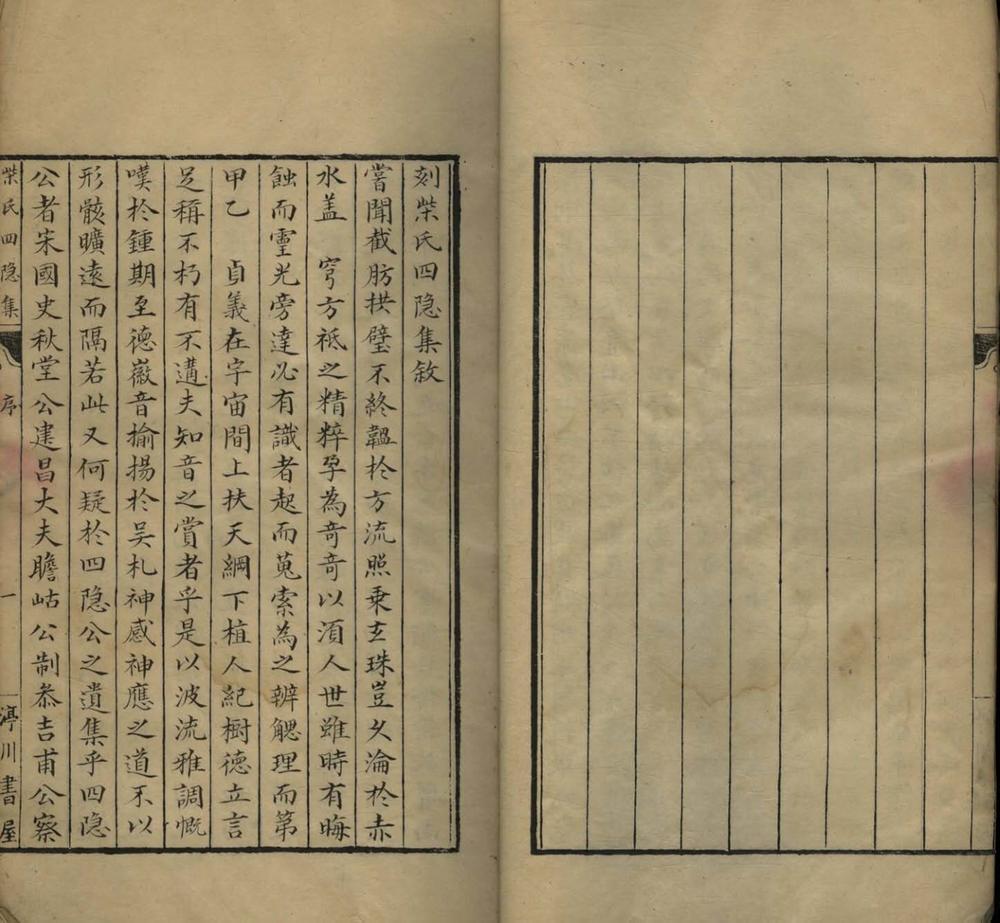 刻柴氏四隐集敘
嘗聞截肪拱璧不終韞於方流照乗玄珠豈久淪於赤
水盖 穹方祇之精粹孕為竒竒以湏人世雖時有晦
蝕而霊光旁達必有識者起而蒐索為之辨䚡理而第
甲乙 貞義在宇宙間上扶天綱下植人紀樹德立言
足稱不朽有不遘夫知音之賞者乎是以波流雅調慨
嘆於鍾期至德徽音揄揚於吴札神感神應之道不以
形骸曠遠而隔若此又何疑於四隐公之遺集乎四隐
公者宋國史秋堂公建昌大夫瞻岵公制叅吉甫公察
柴氏四隐集 序 一 渟川書屋